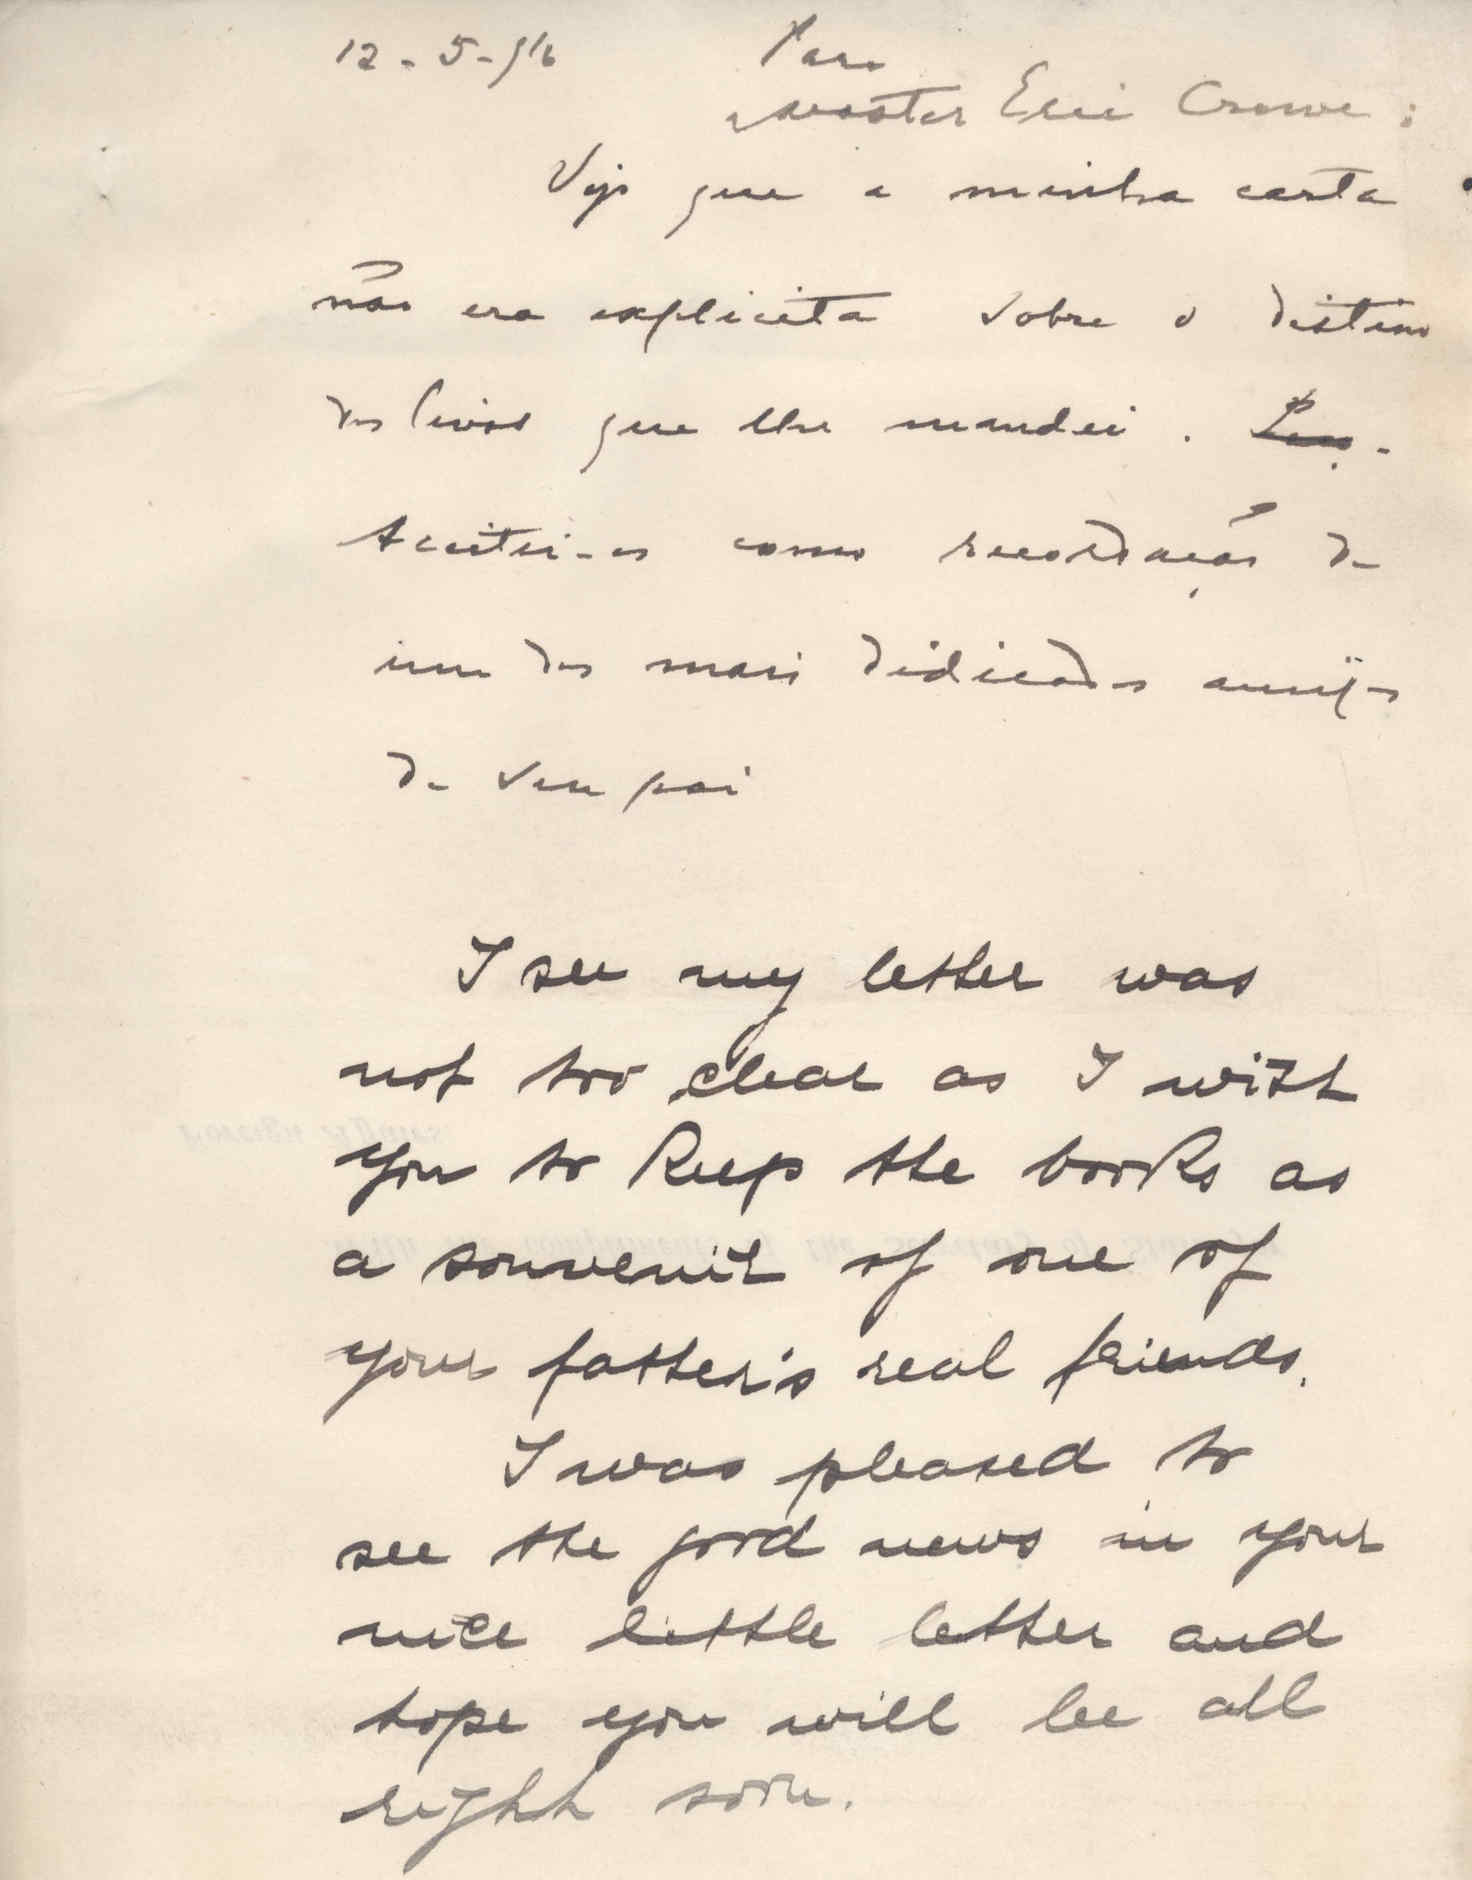 12-5-916
Para
Master Eric Crowe:
Vejo que a minha carta
não era explicita sobre o destino
dos livros que lhe mandei.
Aceitei-os como recordação de
um dos mais dedicados amigos
de seu pai
I see my letter was
not too clear as I wish
you to keep the books as
a souvenir of one of
your father's real friends.
I was pleased to
see the good news in your
nice little letter and
hope you will be all
right soon.